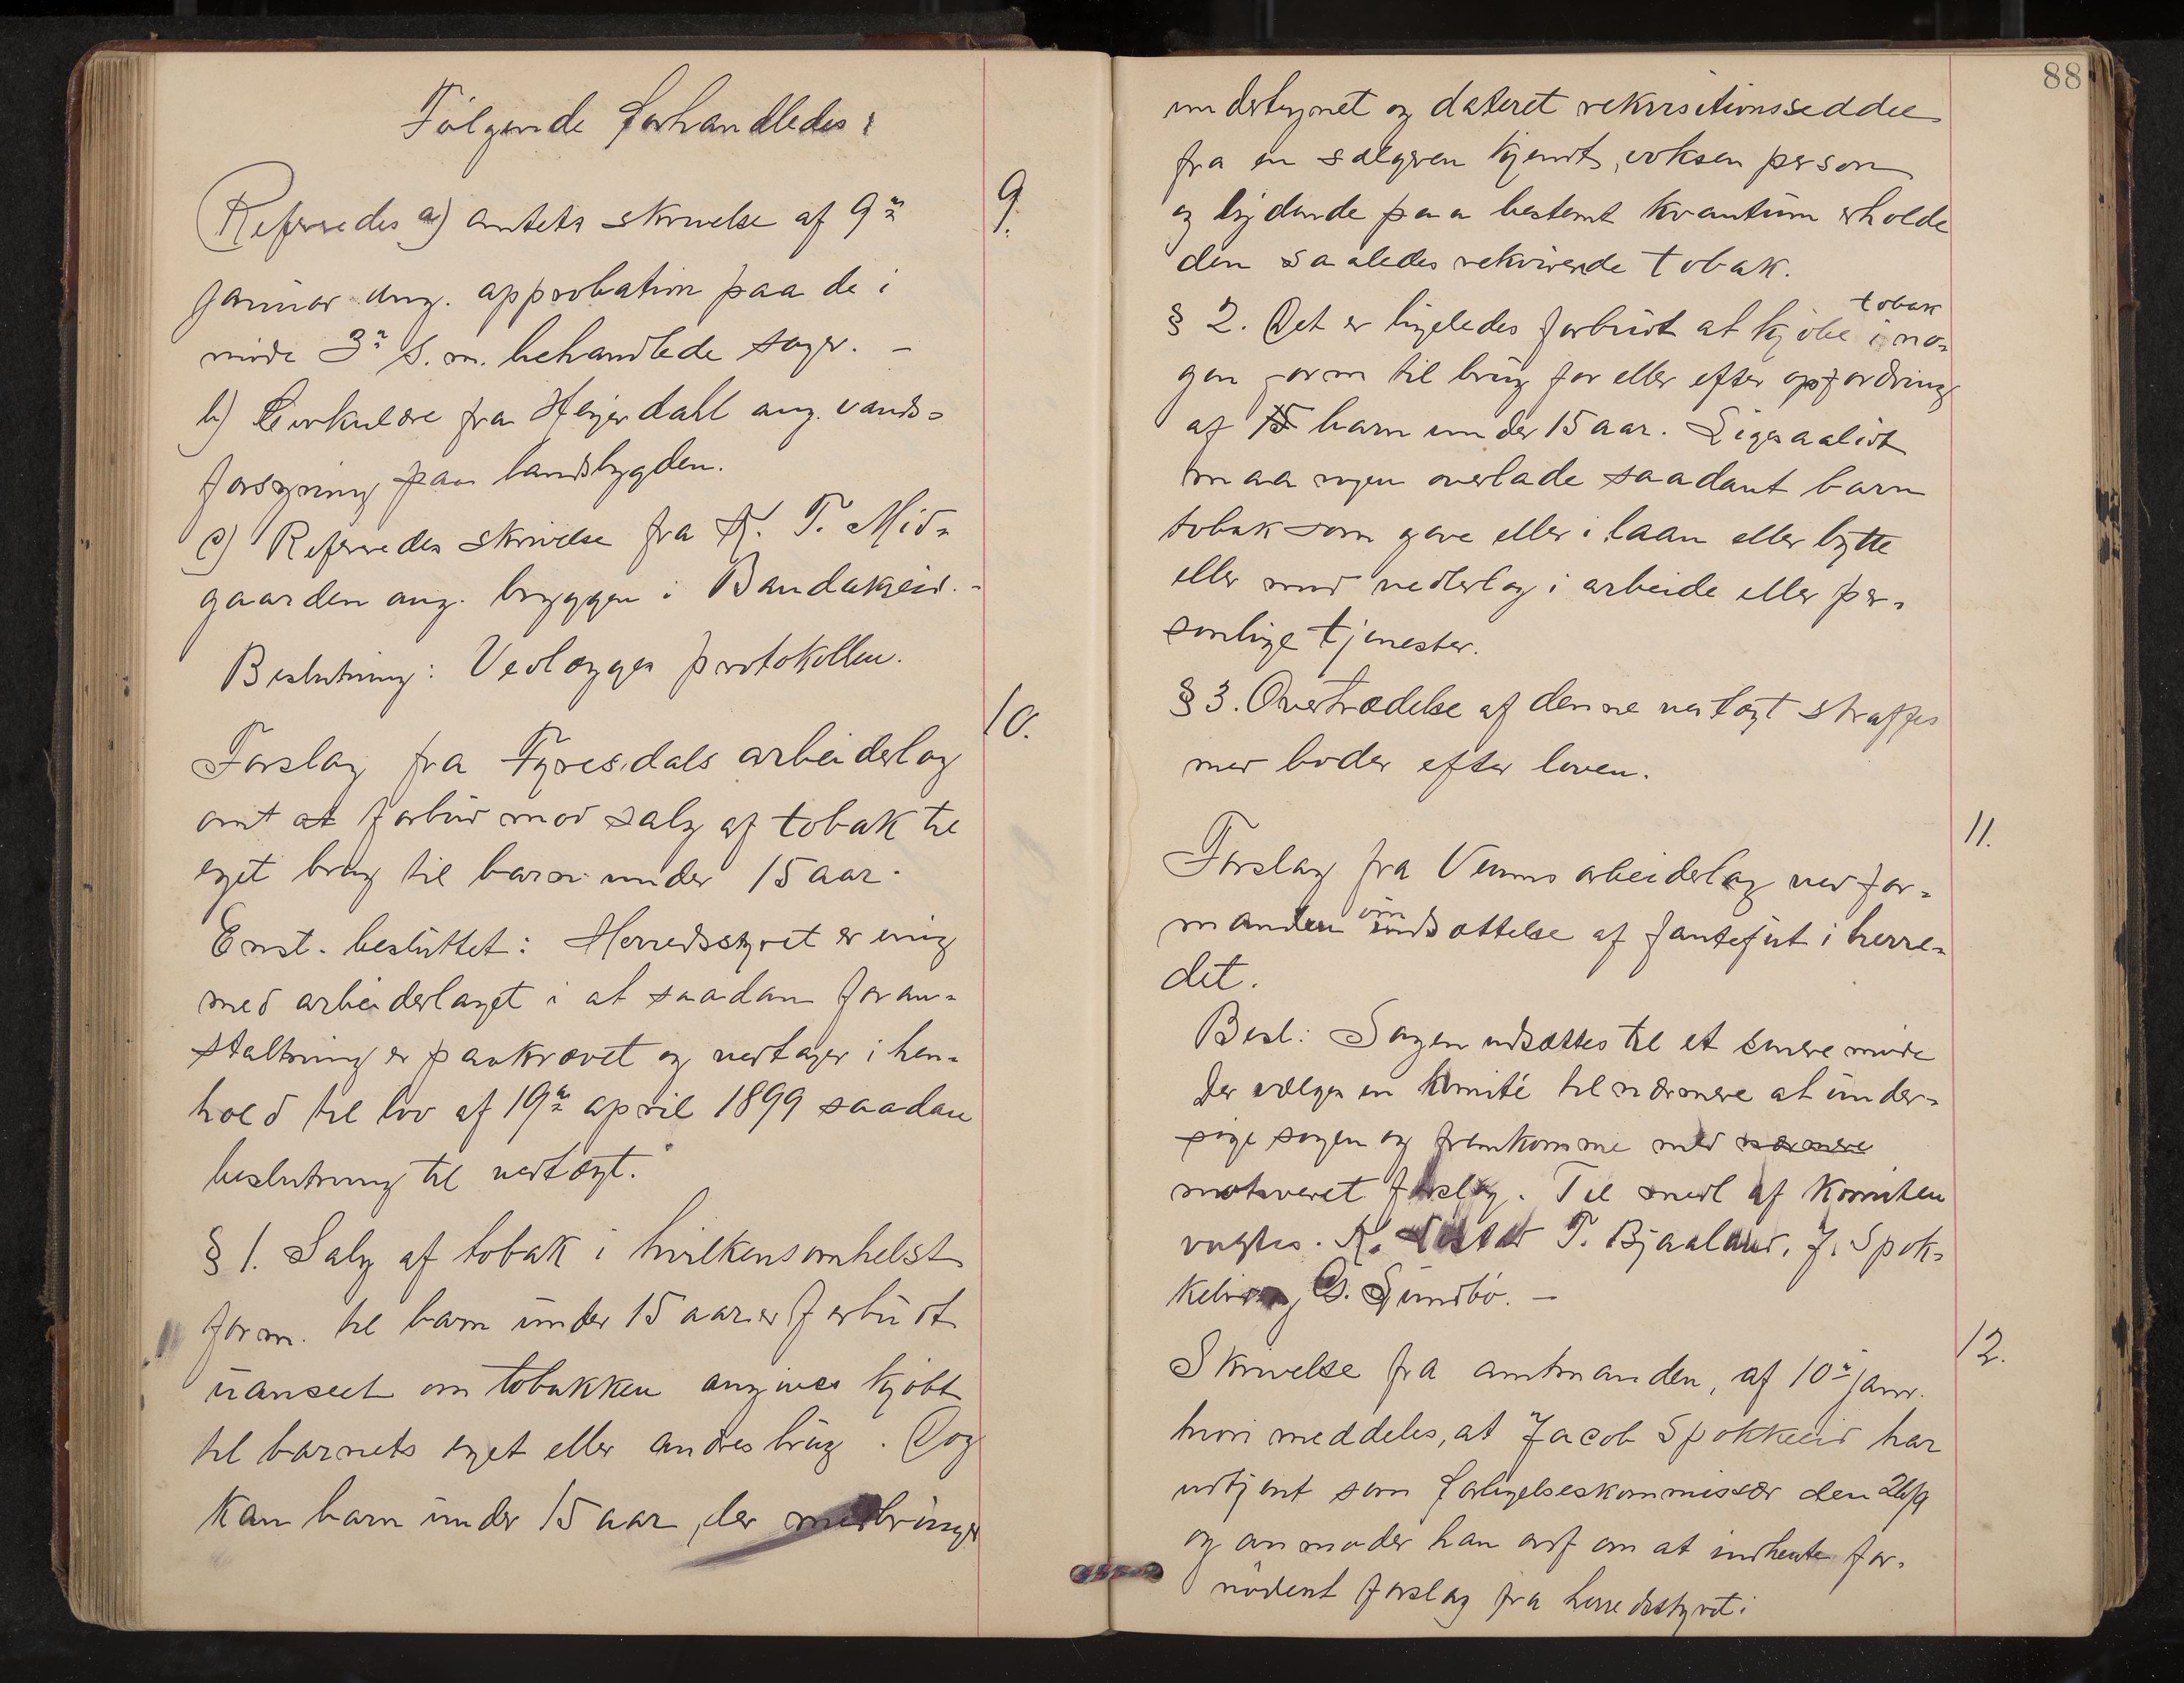 Følgende forhandledes:
9.
Referredes a) amtets skrivelse af 9de
januar ang. approbation paa de i
møde 3de s. m. behandlede sager. –
b) Cirkulære fra Heyerdahl ang. vand-
forsyning paa landsbygden.
c) Referredes skrivelse fra K. T. Mid-
gaarden ang. bryggen i Bandakseid. –
Beslutning: Vedlægges protokollen.
10.
Forslag fra Fyresdals arbeiderlag
om at forbud mod salg af tobak til
eget brug til barn under 15 aar.
Enst. besluttet: Herredsstyret er enig
med arbeiderlaget i at saadan foran-
staltning er paakrævet og vedtager i hen-
hold til lov af 19de april 1899 saadan
beslutning til vedtægt.
§ 1. Salg af tobak i hvilkensomhelst
form til barn under 15 aar er forbudt
uanseet om tobakken angives kjøbt
til barnets eget eller andres brug. Dog
kan barn under 15 aar, der medbringer
88
undertegnet og dateret rekvisitionsseddel
fra en sælgeren kjendt, voksen person
og lydende paa bestemt kvantum erholde
den saaledes rekvirerede tobak.
§ 2. Det er ligeledes forbudt at kjøbe tobak i no-
gen form til brug for eller efter opfordring
af 15 barn under 15 aar. Ligesaalidt
maa nogen overlade saadant barn
tobak som gave eller i laan eller bytte
eller mod vederlag i arbeide eller per-
sonlige tjenester.
§ 3. Overtrædelse af denne vedtægt straffes
med bøder efter loven.
11.
Forslag fra Veums arbeiderlag ved for-
manden om indsættelse af fantefut i herre-
det.
Besl: Sagen udsættes til et senere møde
Der vælges en komité til nærmere at under-
søge sagen og fremkomme med nærmere
motiveret forslag. Til medl af komiteen
valgtes. K. T. Bjaaland, J. Spok-
G. Sundbø. –
12.
Skrivelse fra amtmanden, af 10de janr.
hvori meddeles, at Jacob Spokkeid har
udtjent som forligelseskommissær den 26/9
og anmoder han ordf om at indhente for-
nødent forslag fra herredsstyret: